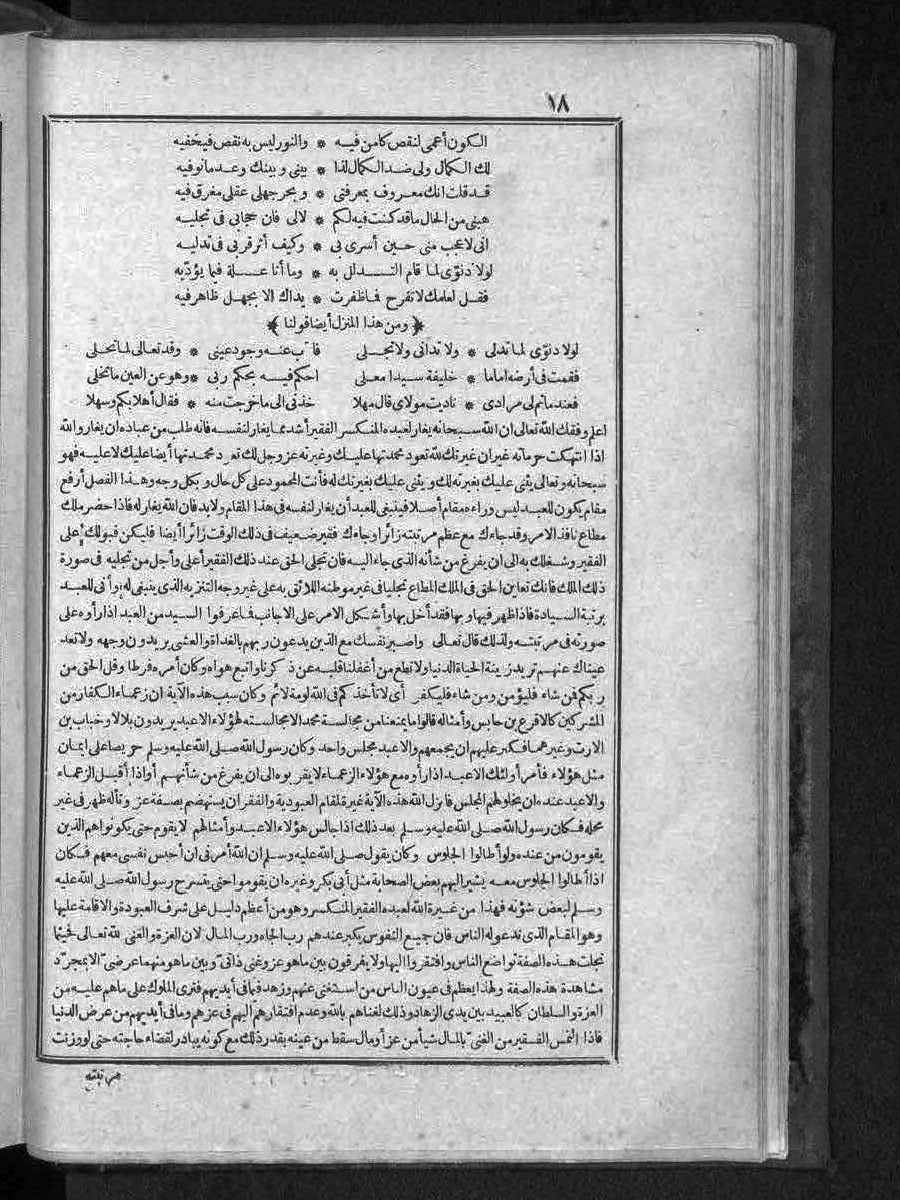 ١٨
الكون أعمى لنقص كامن فيه * والنور ليس به نقص فيخفيه
لك الكمال ولى ضد الكمال لذا * بينى وبينك وعد ما نوفيه
قد قلت انك معروف بمعرفتى * وبحر جهلى عقلى مغرق فيه
هبنى من الحال ما قد كنت فيه لكم * لالى فان حجابى فى تجليه
انى لاعجب منى حين أسرى بى * وكيف أثر قربى فى تدليه
لولا دنوّى لما قام التدلل به * وما أنا علة فيما يؤدّيه
فقل لعلمك لا تفرح فما ظفرت * يداك الا بجهل ظاهر فيه
﴿ ومن هذا المنزل أيضا قولنا ﴾
لولا دنوّى لما تدلى * ولا تدانى ولا تجلى قاب عنه وجود عينى * وقد تعالى لما تحلى
فقمت فى أرضه اماما * خليفة سيدا معلى احكم فيه بحكم ربى * وهو عن العين ما تخلى
فعندما تم لى مرادى * ناديت مولاى قال مهلا خذنى الى ما خرجت منه * فقال أهلا بكم وسهلا
اعلم وفقك الله تعالى ان الله سبحانه يغار لعبده المنكسر الفقير أشد مما يغار لنفسه فانه طلب من عباده ان يغاروا لله
اذا انتهكت حرماته غير ان غيرتك لله تعود محمدتها عليك وغيرته عز وجل لك تعود محمدتها أيضا عليك لا عليه فهو
سبحانه وتعالى يثنى عليك بغيرته لك ويثنى عليك بغيرتك له فأنت المحمود على كل حال وبكل وجه وهذا الفصل أرفع
مقام يكون للعبد ليس وراءه مقام أصلا فينبغى للعبد أن يغار لنفسه فى هذا المقام ولا بد فان الله يغار له فاذا حضر ملك
مطاع نافذ الامر وقد جاءك مع عظم مرتبته زائرا وجاءك فقير ضعيف فى ذلك الوقت زائرا أيضا فليكن قبولك على
الفقير وشغلك به الى ان يفرغ من شأنه الذى جاء اليه فان تجلى الحق عند ذلك الفقير أعلى وأجل من تجليه فى صورة
ذلك الملك فانك تعاين الحق فى الملك المطاع تجليا فى غير موطنه اللائق به على غير وجه التنزيه الذى ينبغى له وأنى للعبد
برتبة السيادة فاذا ظهر فيها وبها فقد أخل بها وأشكل الامر على الاجانب فما عرفوا السيد من العبد اذا رأوه على
صورته فى مرتبته ولذلك قال تعالى واصبر نفسك مع الذين يدعون ربهم بالغداة والعشى يريدون وجهه ولا تعد
عيناك عنهم تريد زينة الحياة الدنيا ولا تطع من أغفلنا قلبه عن ذكرنا واتبع هواه وكان أمره فرطا وقل الحق من
ربكم فمن شاء فليؤمن ومن شاء فليكفر أى لا تأخذكم فى الله لومة لائم وكان سبب هذه الآية ان زعماء الكفار من
المشركين كالاقرع بن حابس وأمثاله قالوا ما يمنعنا من مجالسة محمد الا مجالسته لهؤلاء الاعبد يريدون بلالا وخباب بن
الارت وغيرهما فكبر عليهم ان يجمعهم والاعبد مجلس واحد وكان رسول الله صلى الله عليه وسلم حريصا على ايمان
مثل هؤلاء فأمر أولئك الاعبد اذا رأوه مع هؤلاء الزعماء لا يقربوه الى ان يفرغ من شأنهم أو اذا أقبل الزعماء
والاعبد عنده ان يخلوا لهم المجلس فانزل الله هذه الآية غيرة لمقام العبودية والفقر ان يستهضم بصفة عز وتأله ظهر فى غير
محله فكان رسول الله صلى الله عليه وسلم بعد ذلك اذا جالس هؤلاء الاعبد وأمثالهم لا يقوم حتى يكونوا هم الذين
يقومون من عنده ولو أطالوا الجلوس وكان يقول صلى الله عليه وسلم ان الله أمرنى ان أحبس نفسى معهم فكان
اذا أطالوا الجلوس معه يشير اليهم بعض الصحابة مثل أبى بكر وغيره ان يقوموا حتى يتسرح رسول الله صلى الله عليه
وسلم لبعض شؤنه فهذا من غيرة الله لعبده الفقير المنكسر وهو من أعظم دليل على شرف العبودة والاقامة عليها
وهو المقام الذى ندعو له الناس فان جميع النفوس يكبر عندهم رب الجاه ورب المال لان العزة والغنى لله تعالى فحيثما
تجلت هذه الصفة تواضع الناس وافتقروا اليها ولا يفرقون بين ما هو عز وغنى ذاتىّ وبين ما هو منهما عرضىّ الا بمجرّد
مشاهدة هذه الصفة ولهذا يعظم فى عيون الناس من استغنى عنهم وزهد فيما فى أيديهم فترى الملوك على ما هم عليه من
العزة والسلطان كالعبيد بين يدى الزهاد وذلك لغناهم بالله وعدم افتقارهم اليهم فى عزهم وما فى أيديهم من عرض الدنيا
فاذا التمس الفقير من الغنىّ بالمال شيأ من عز أو مال سقط من عينه بقدر ذلك مع كونه يبادر لقضاء حاجته حتى لو وزنت
مرتبته